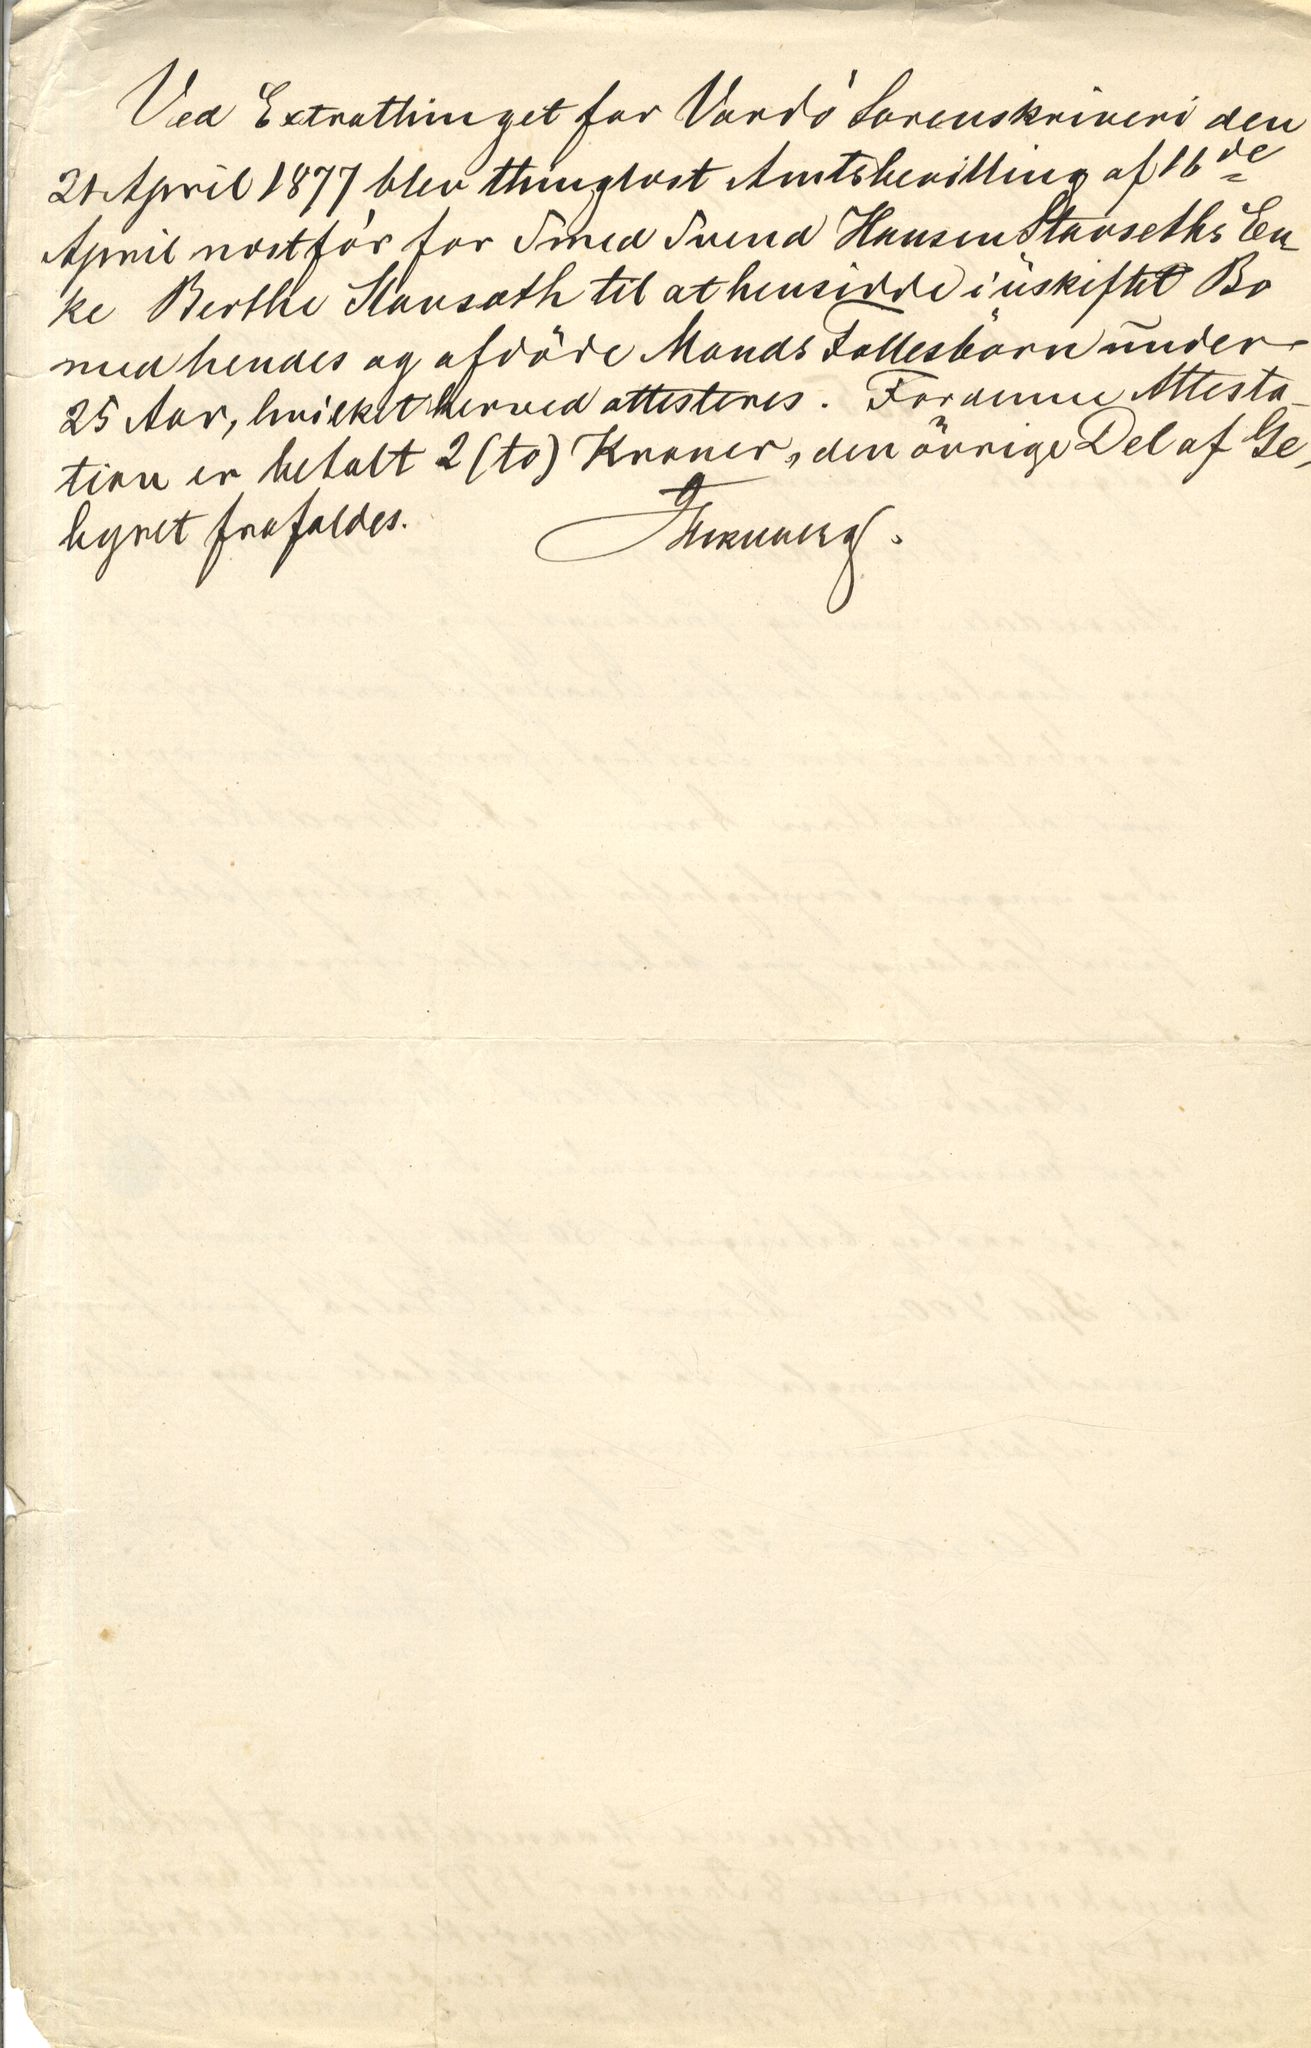 Ved Extrathinget for Vardö Sorenskriveri den
21 April 1877 blev thinglæst Amtsbevilling af 16de
April næstför for Smed Svend Hansen Stavseths En-
ke Berthe Stavsæth til at hensidde i uskiftet Bo
med hendes og afdöde Mands Fællesbörn under
25 Aar, hvilket herved attesteres. For denne Attesta-
tion er betalt 2 (to) Kroner, den övrige Del af Ge-
byret frafaldes.